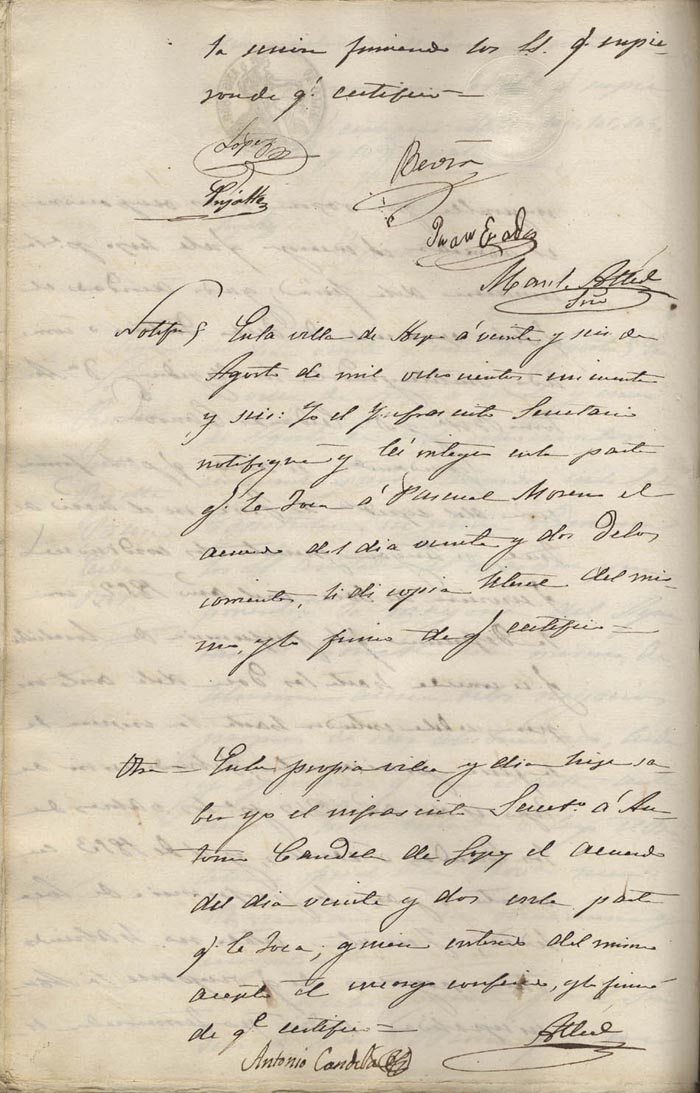 la union firmando los SS. q.e supie-
ron de q.e certifico =
López
Beviá
Pujalte
Juan
Man.l
Srio
Notifn En la villa de Aspe á veinte y seis de
Agosto de mil ochocientos cincuenta
y seis: Yo el Ynfrascrito Secretario
notifiqué y leí integro en la parte
q.e le toca á Pascual Moreno el
acuerdo del dia veinte y dos delos
corrientes, le dí copia literal del mis-
mo, y lo firmo de q.e certifico =
Otra = En la propia villa y dia hize sa-
ber yo el infrascrito Secret.o á An-
tonio Candela de Lopez el acuerdo
del dia veinte y dos en la parte
q.e le toca, y quien enterado del mismo
acepto el encargo conferido, y lo firmó
de q.e certifico =
Antonio Candela